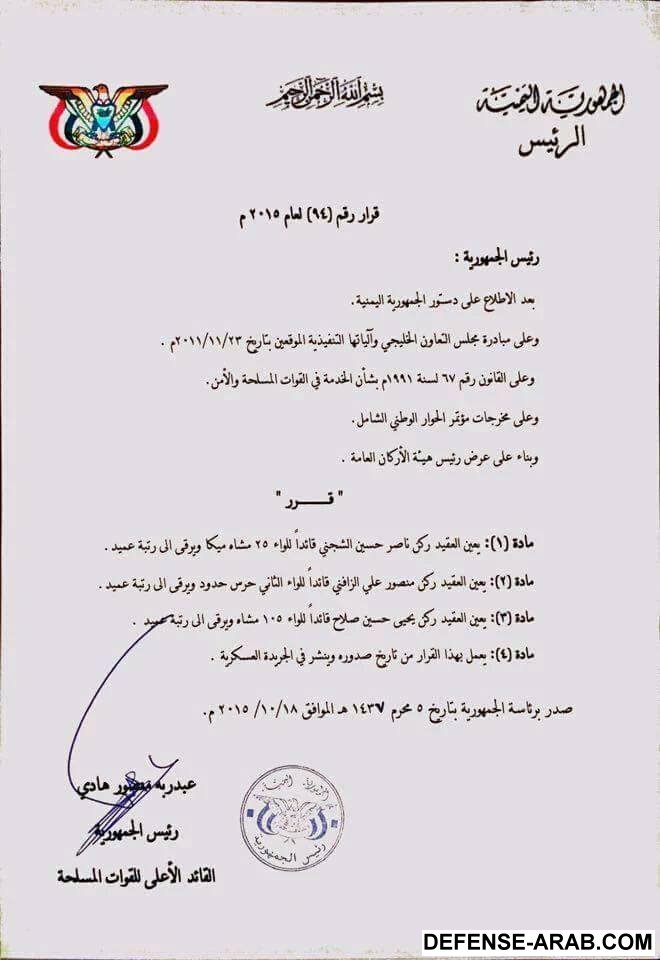 الجمهورية اليمنية
الرئيس
بسم الله الرحمن الرحيم
قرار رقم (٩٤) لعام ٢٠١٥ م
رئيس الجمهورية :
بعد الاطلاع على دستور الجمهورية اليمنية.
وعلى مبادرة مجلس التعاون الخليجي وآلياتها التنفيذية الموقعين بتاريخ ٢٠١١/١١/٢٣م .
وعلى القانون رقم ٦٧ لسنة ١٩٩١م بشأن الخدمة في القوات المسلحة والأمن.
وعلى مخرجات مؤتمر الحوار الوطني الشامل.
وبناء على عرض رئيس هيئة الأركان العامة .
" قـــــرر "
مادة (١): يعين العقيد ركن ناصر حسين الشجني قائداً للواء ٢٥ مشاه ميكا ويرقى الى رتبة عميد .
مادة (٢): يعين العقيد ركن منصور علي الزافني قائداً للواء الثاني حرس حدود ويرقى الى رتبة عميد .
مادة (٣): يعين العقيد ركن يحيى حسين صلاح قائداً للواء ١٠٥ مشاه ويرقى الى رتبة عميد .
مادة (٤): يعمل بهذا القرار من تاريخ صدوره وينشر في الجريدة العسكرية .
صدر برئاسة الجمهورية بتاريخ ٥ محرم ١٤٣٧ هـ الموافق ١٨/ ١٠/ ٢٠١٥ م.
عبدربه منصور هادي
رئيس الجمهورية
القائد الأعلى للقوات المسلحة
الجمهورية اليمنية
رئيس الجمهورية
DEFENSE-ARAB.COM